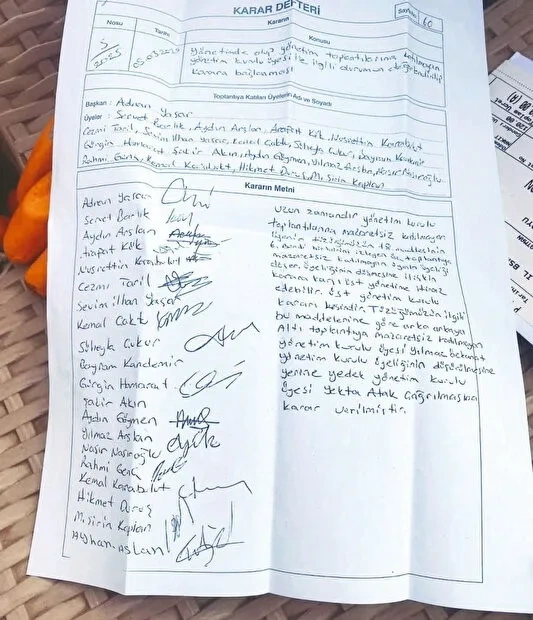 KARAR DEFTERİ
Sayfa No: 60
Kararın
Nosu
Tarihi
Konusu
5
2025
05.03.2025
Yönetimde olup yönetim toplantılarına katılmayan
yönetim kurulu üyesi ile ilgili durumun değerlendirilip
karara bağlanması
Toplantıya Katılan Üyelerin Adı ve Soyadı
Başkan: Adnan Yaşar
Üyeler: Servet Barlık, Aydın Arslan, Arafat Kılk, Nusrettin Karabulut
Cezmi Tanıl, Sevim ilhan Yaşar, Kemal Cakt, Süheyla Çukur, Bayram Kandemir
Gürgin Hamarat, Şakir Akın, Aydın Göymen, Yılmaz Arslan, Nasır Nasıroğlu
Rahmi Genç, Kemal Karabulut, Hikmet Duruş, M. Şirin Kaplan
Kararın Metni
Adnan Yaşar
Servet Barlık
Aydın Arslan
Arafat Kılk
Nusrettin Karabulut
Cezmi Tanıl
Sevim ilhan Yaşar
Kemal Cakt
Süheyla Çukur
Bayram Kandemir
Gürgin Hamarat
Şakir Akın
Aydın Göymen
Yılmaz Arslan
Nasır Nasıroğlu
Rahmi Genç
Kemal Karabulut
Hikmet Duruş
M. Şirin Kaplan
Ayhan Aslan
Uzun zamandır yönetim kurulu
toplantılarına mazaretsiz katılmayan
üyenin tüzüğümüzün 18. maddesinin
6. bendi
mazaretsiz katılmayan üyenin üyeliği
düşer. üyeliğinin düşmesine ilişkin
karara karşı üst yönetime itiraz
edebilir. üst yönetim kurulu
kararı kesindir. Tüzüğümüzün ilgili
bu maddelenine göre arka arkaya
Altı toplantıya mazaretsiz katılmayan
yönetim kurulu üyesi Yılmaz
yönetim kurulu üyeliğinin düşürülmesine
yerine yedek yönetim kurulu
üyesi Yekta Atak çağrılmasına
karar verilmiştir.